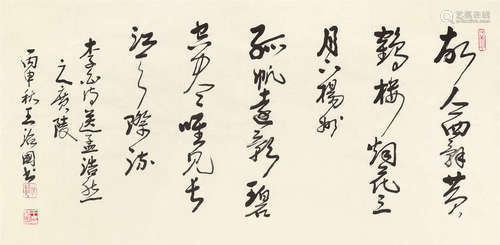 故人西辞黄
鶴楼烟花三
月下揚州
孤帆遠影碧
空尽唯见长
江天際流
李白诗送孟浩然
之廣陵
丙申秋王治国书